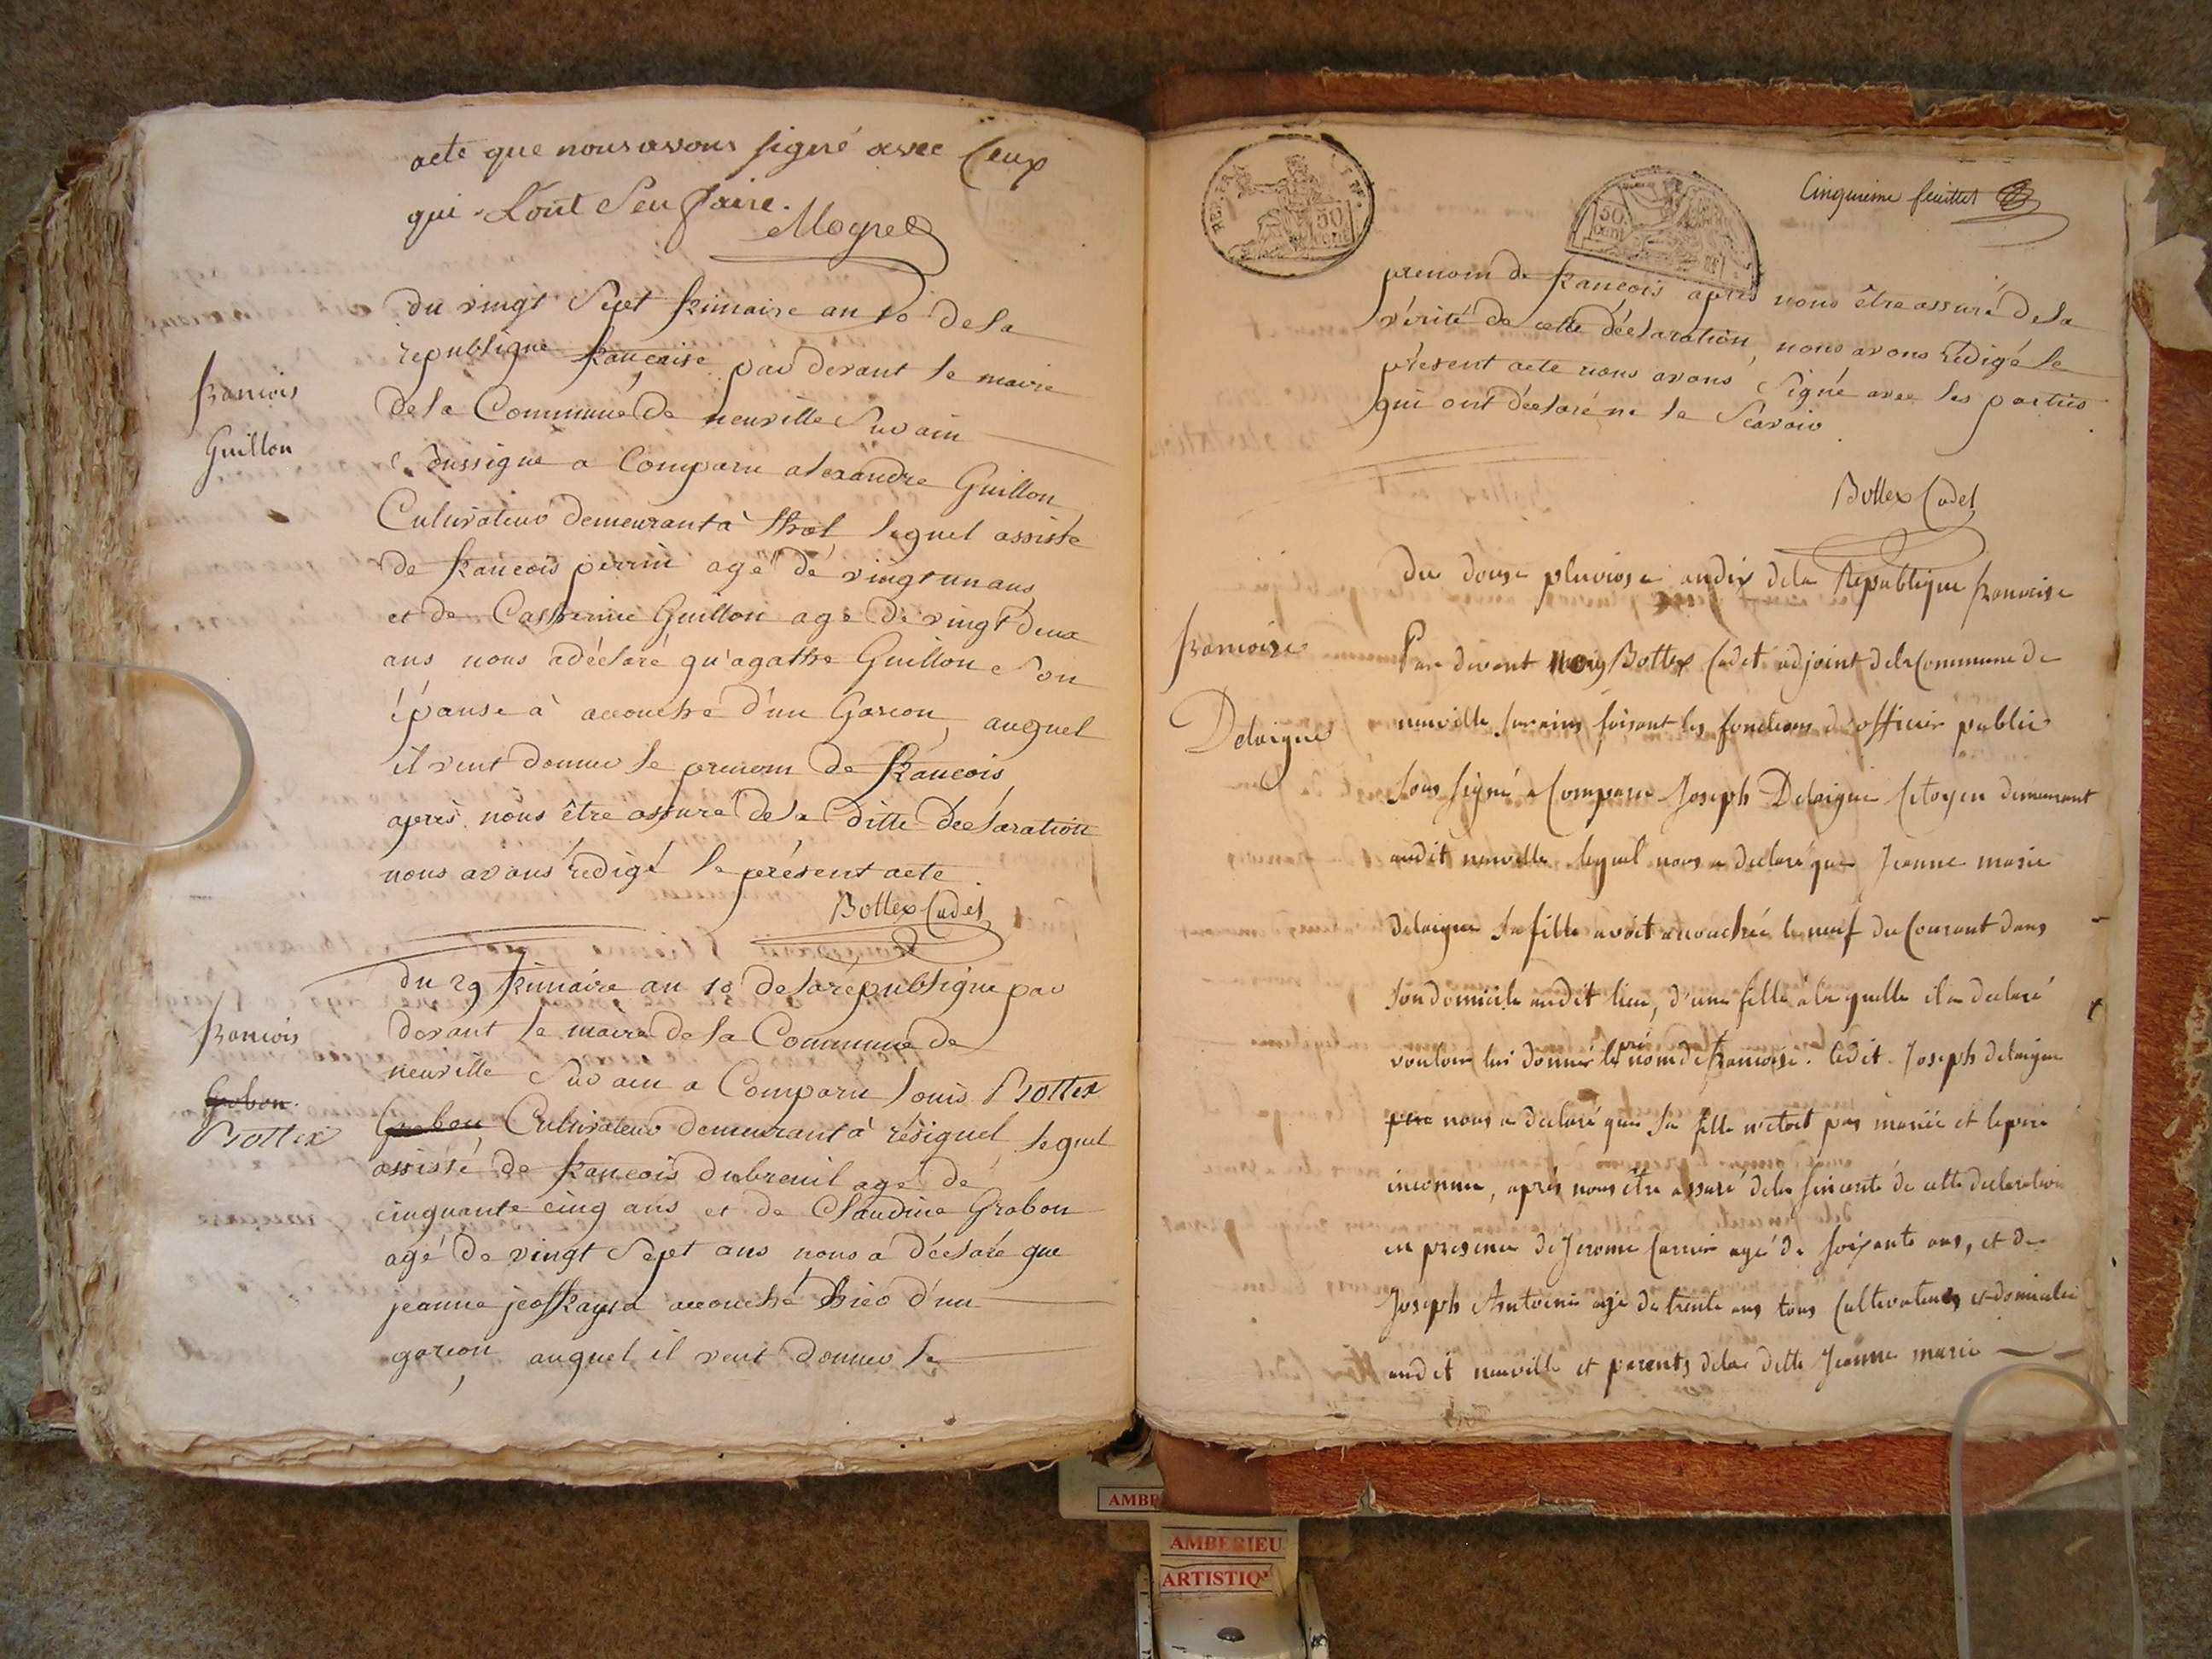 acte que nous avons signé avec Ceux
qui L'ont Seu faire.
Moyret
du vingt Sept frimaire an 10 de la
republique française par devant le maire
de la Commune de neuville Sur ain
Soussigné a Comparu alexandre Guillon
Cultivateur demeurant à thol lequel assisté
de francois perrin agé de vingt un ans
et de Catherine Guillon agé de vingt deux
ans nous a déclaré qu'agathe Guillon Son
épouse à accouché d'un Garcon, auquel
il veut donner le prenom de francois
aprés nous être assuré de la ditte déclaration
nous avons rédigé le présent acte
Bottex Cadet
francois
Guillon
du 29 frimaire an 10 de la république par
devant le maire de la Commune de
neuville Sur ain a Comparu Louis Bottex
Grobon Cultivateur demeurant à résignel lequel
assisté de francois dubreuil agé de
cinquante cinq ans et de Claudine Grobon
agé de vingt Sept ans nous a déclaré que
jeanne jeoffray a accouché hier d'un
garcon, auquel il veut donner le
francois
Grobon
Bottex
REP. FRA.
50 cent
50 cent
Cinquieme feuillet
prenom de francois aprés nous être assuré de la
vérité de cette déclaration, nous avons rédigé le
présent acte nous avons Signé avec les parties
qui ont déclaré ne le Scavoir.
Bottex Cadet
du douze pluviose an dix de la République francoise
Par devant nous Bottex Cadet adjoint de la Commune de
neuville sur ains faisant les fonctions d'officier public
sous signé a Comparu Joseph Delaigue Citoyen demeurant
audit neuville lequel nous a declaré que Jeanne marie
delaigue sa fille avoit accouchée le neuf du Courant dans
son domicile audit lieu, d'une fille à la quelle il a declaré
vouloir lui donner le prénom de francoise. ledit Joseph delaigue
pere nous a declaré que sa fille n'etoit pas mariée et le pere
inconnu, aprés nous être assuré de la sincerité de cette declaration
en presence de Jerome Carrier agé de soixante ans, et de
Joseph Antoine agé de trente ans tous Cultivateurs et domicilié
audit neuville et parents de la ditte Jeanne marie
francoise
Delaigue
AMBE
AMBERIEU
ARTISTIQ